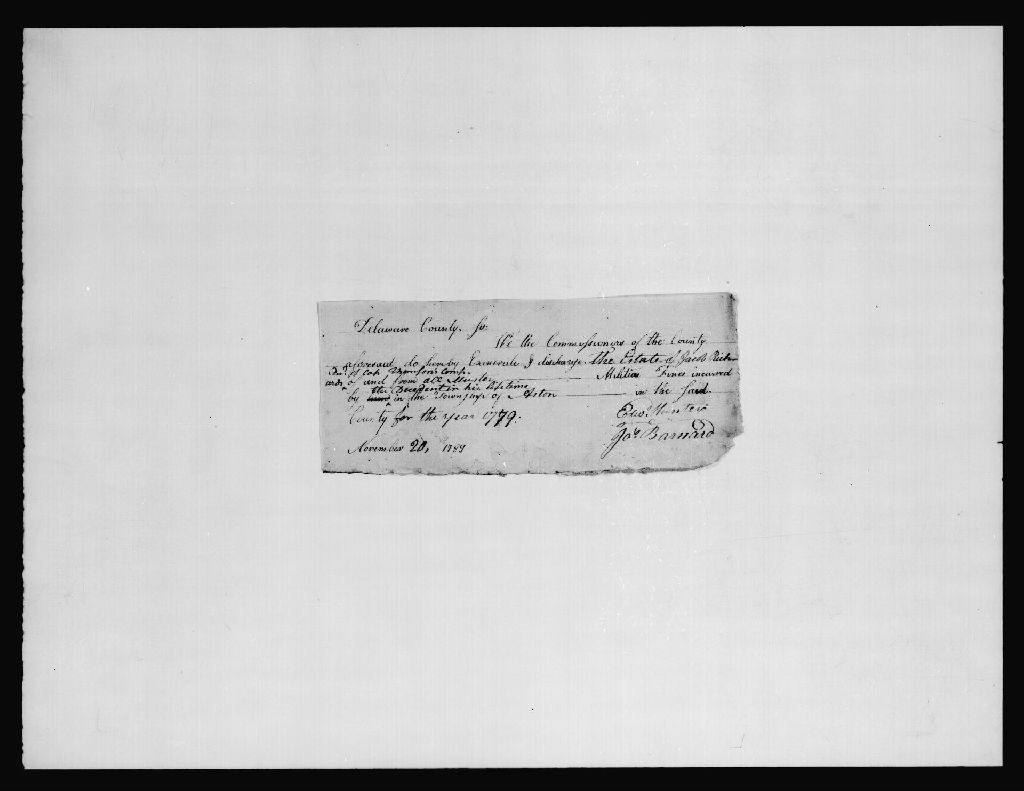 Delaware County, Ss.
We the Commissioners of the County
aforesaid do hereby Exonerate & discharge the Estate of Jacob Rich-
of Cap. Thomson's Comp.
ards and from all Muster Militia Fines incurred
the Decedent in his Lifetime
by in the Township of Aston in the said
County for the year 1779.
Edwd. Hunter
Jas. Barnard
November 20,